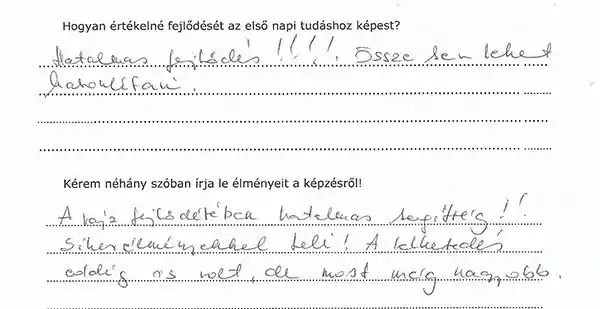 Hogyan értékelné fejlődését az első napi tudáshoz képest?
Hatalmas fejlődés !!!! Össze sem lehet
hasonlítani.
Kérem néhány szóban írja le élményeit a képzésről!
A rajz fejlődésében hatalmas segítség !!
Sikerélményekkel teli! A lelkesedés
eddig is volt, de most még nagyobb.